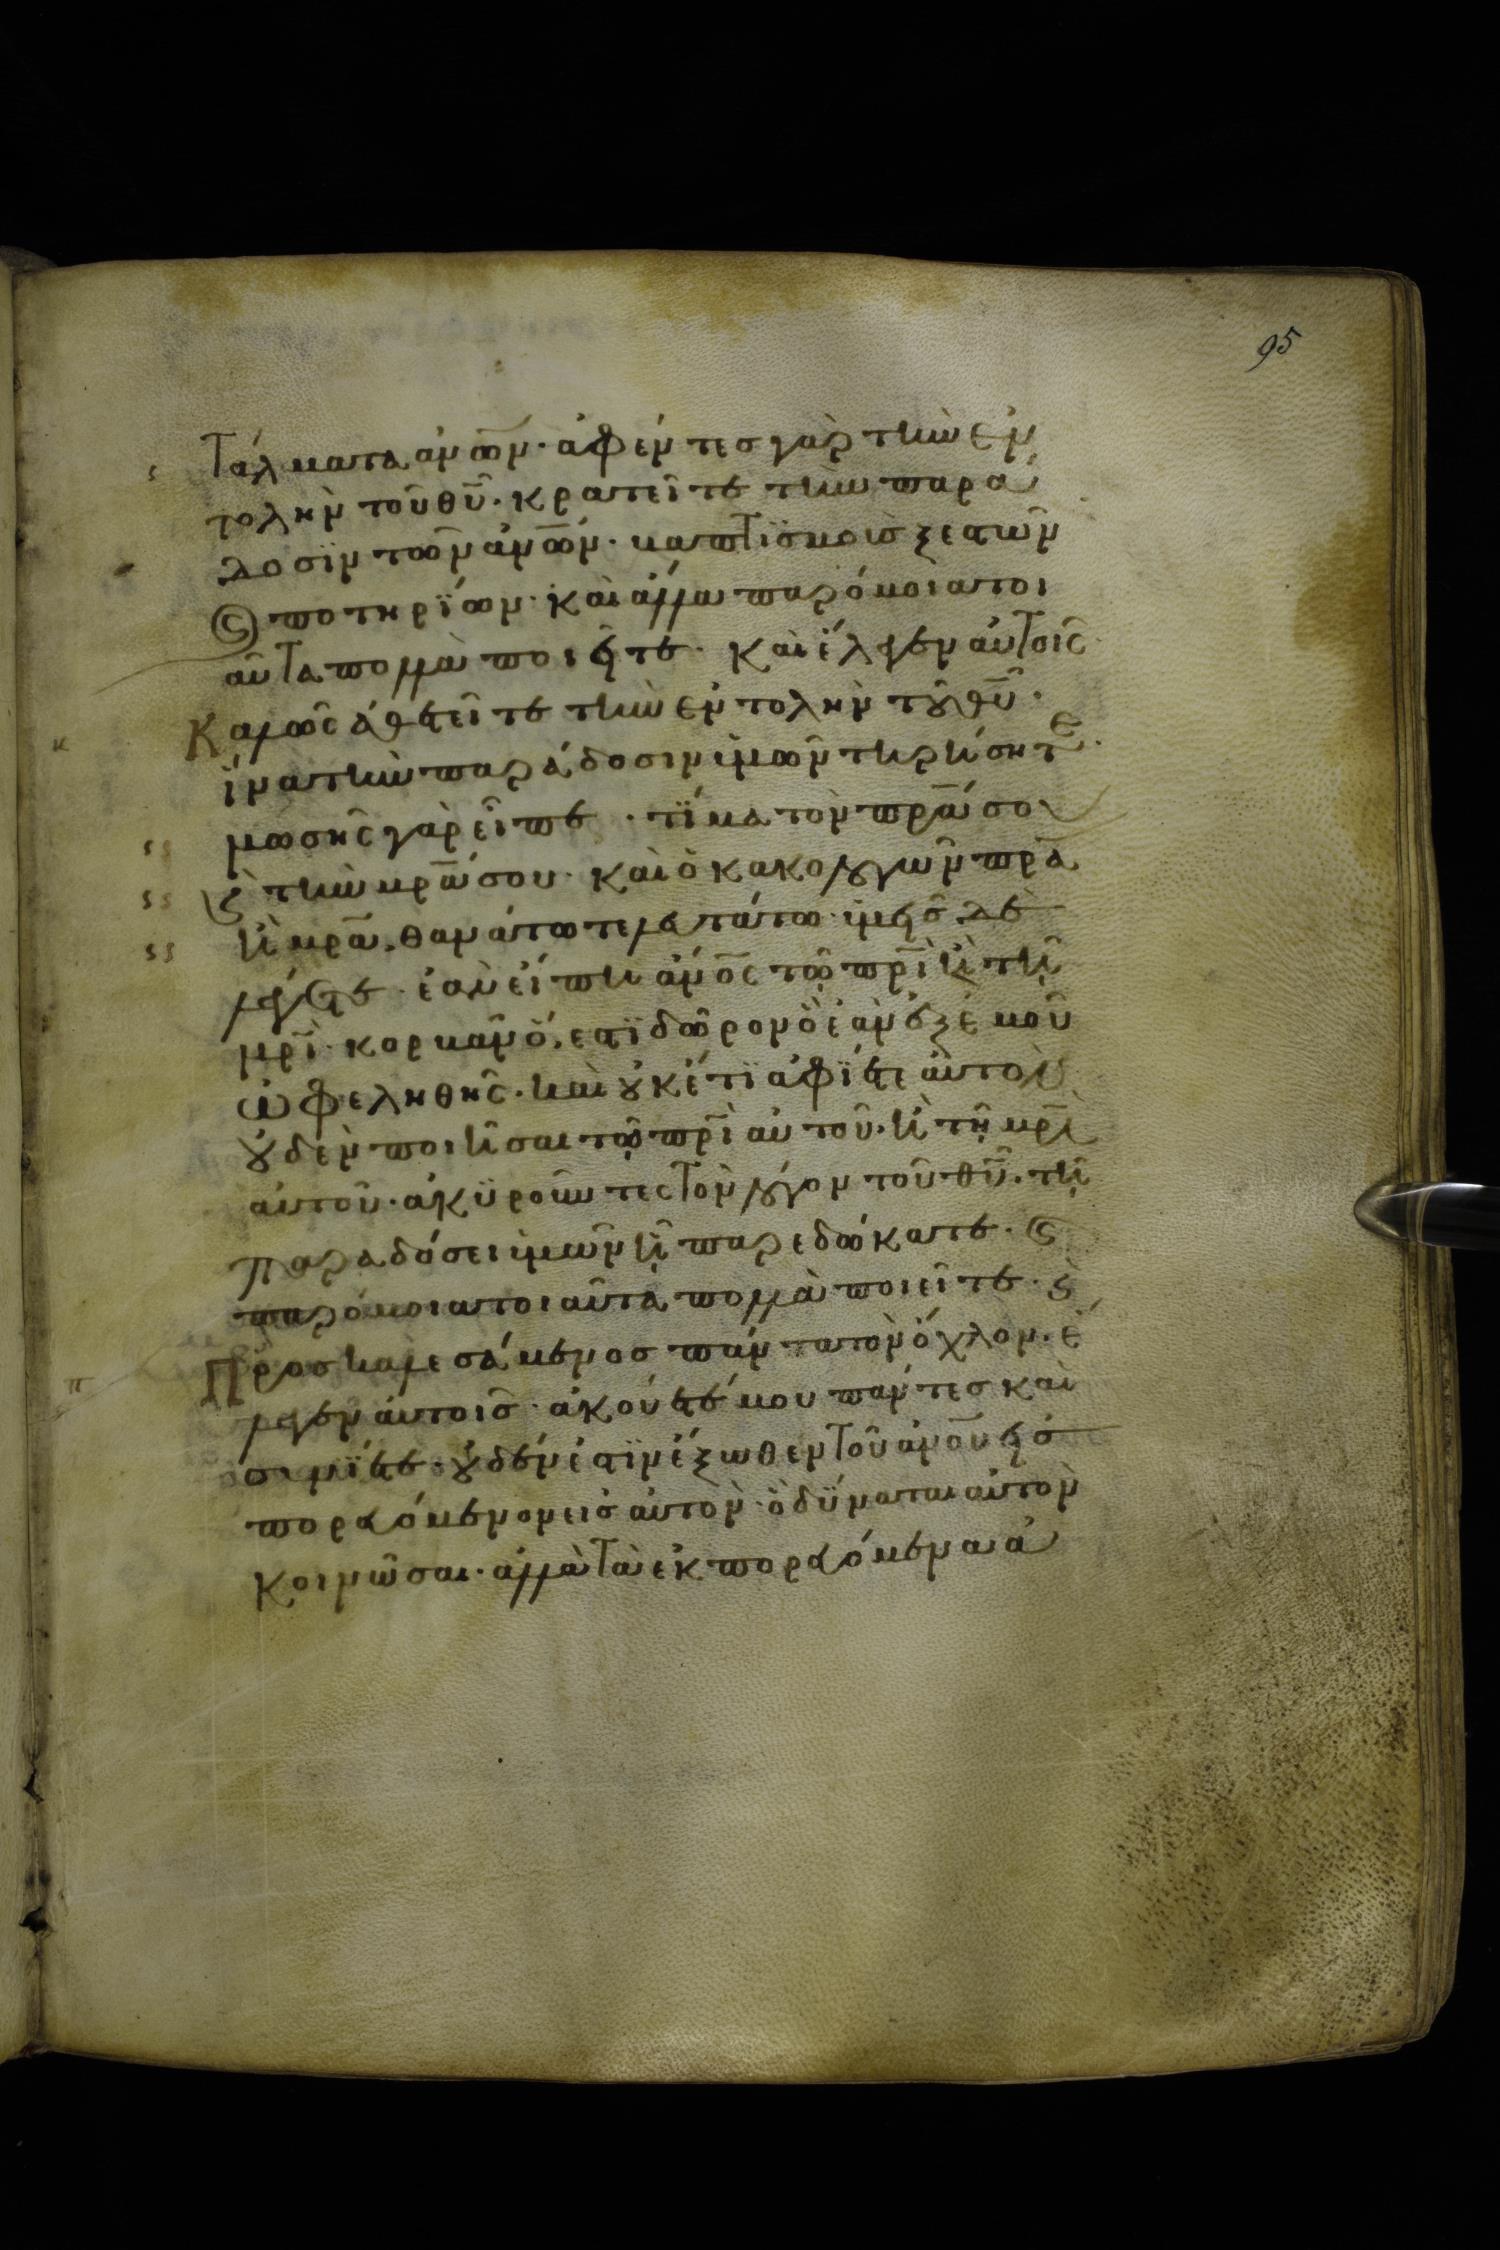 95
τάλματα ἀν̅ω̅ν· ἀφέντες γὰρ τὴν ἐν
τολὴν τοῦ θυ̅· κρατεῖτε τὴν παρά
δοσϊν τῶν ἀν̅ω̅ν· βαπτϊσμοὶς ξεστῶν
ϛ ποτηρϊων· καὶ ἄλλα παρόμοια τοι
αῦτα πολλὰ ποιεῖτε· καὶ ἔλεγεν αὐτοῖς
Καλῶς ἀθετεῖτε τὴν ἐντολὴν τοῦ θυ̅·
ἵνα τὴν παράδοσιν ὑμῶν τηρήσητε·
μωσῆς γὰρ εἶπε· τϊμα τὸν πρ̅α̅ σου
ϛ τὴν μρ̅α̅ σου· καὶ ὁ κακολογῶν πρ̅α̅
ἢ μρ̅α̅, θανάτω τελευτάτω· ὑμεῖς δὲ
λέγετε· ἐὰν εἴπη ἀν̅ο̅ς τῷ πρ̅ι̅ ἢ τῆ
μρ̅ι̅· κορβαν ὅ, εστϊ δῶρον ὃ ἐὰν ἐξ ἐμοῦ
ὠφεληθῆς· καὶ οὐκέτϊ ἀφϊετε αὐτὸν
οὐδὲν ποιῆσαι τῷ πρ̅ι̅ αὐτοῦ· ἢ τῆ μρ̅ι̅
αὐτοῦ· ἀκϋροῦντες τὸν λόγον τοῦ θυ̅· τῆ
παραδόσει ὑμῶν ἧ παρεδώκατε· ϛ
παρόμοια τοιαῦτα πολλὰ ποιεῖτε· ϛ
Προσκαλεσάμενος πάντα τὸν ὄχλον· ἔ
λεγεν αὐτοῖς· ἀκούετέ μου πάντες καὶ
συνϊετε· οὐδέν ἐστϊν ἔξωθεν τοῦ ἀν̅ο̅υ εἰσ
πορευόμενον εἰς αὐτὸν· ὃ δϋναται αὐτὸν
κοινῶσαι· ἀλλὰ τὰ ἐκπορευόμενα ἀ